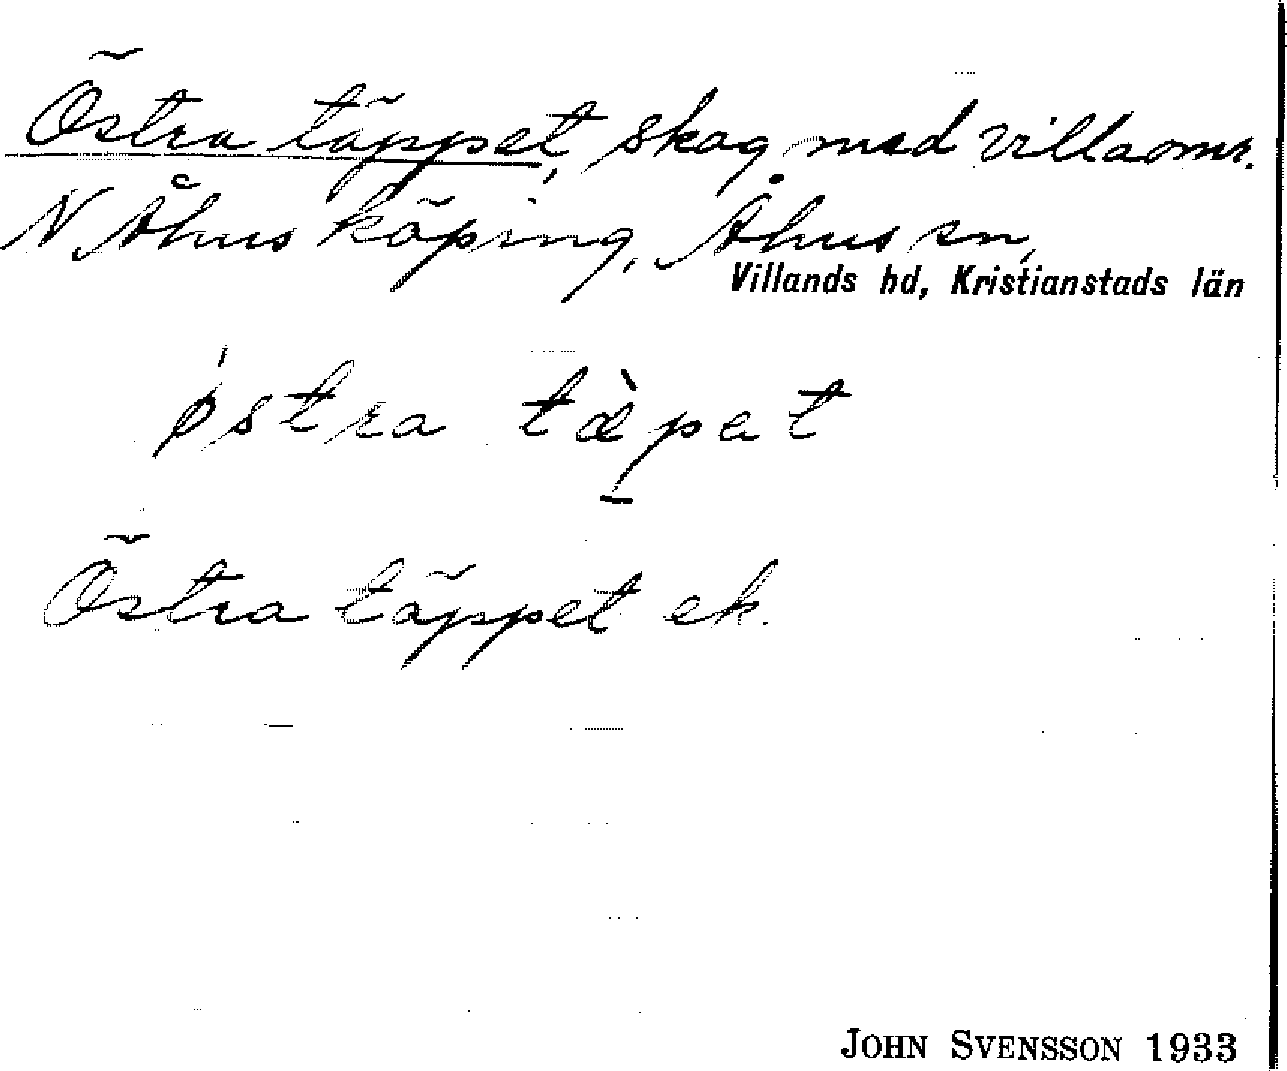 Östra täppet, skog med villaomr.
N Åhus köping, Åhus sn,
Villands hd, Kristianstads län
østra tæ̀pat
Östra täppet ek.
JOHN SVENSSON 1933